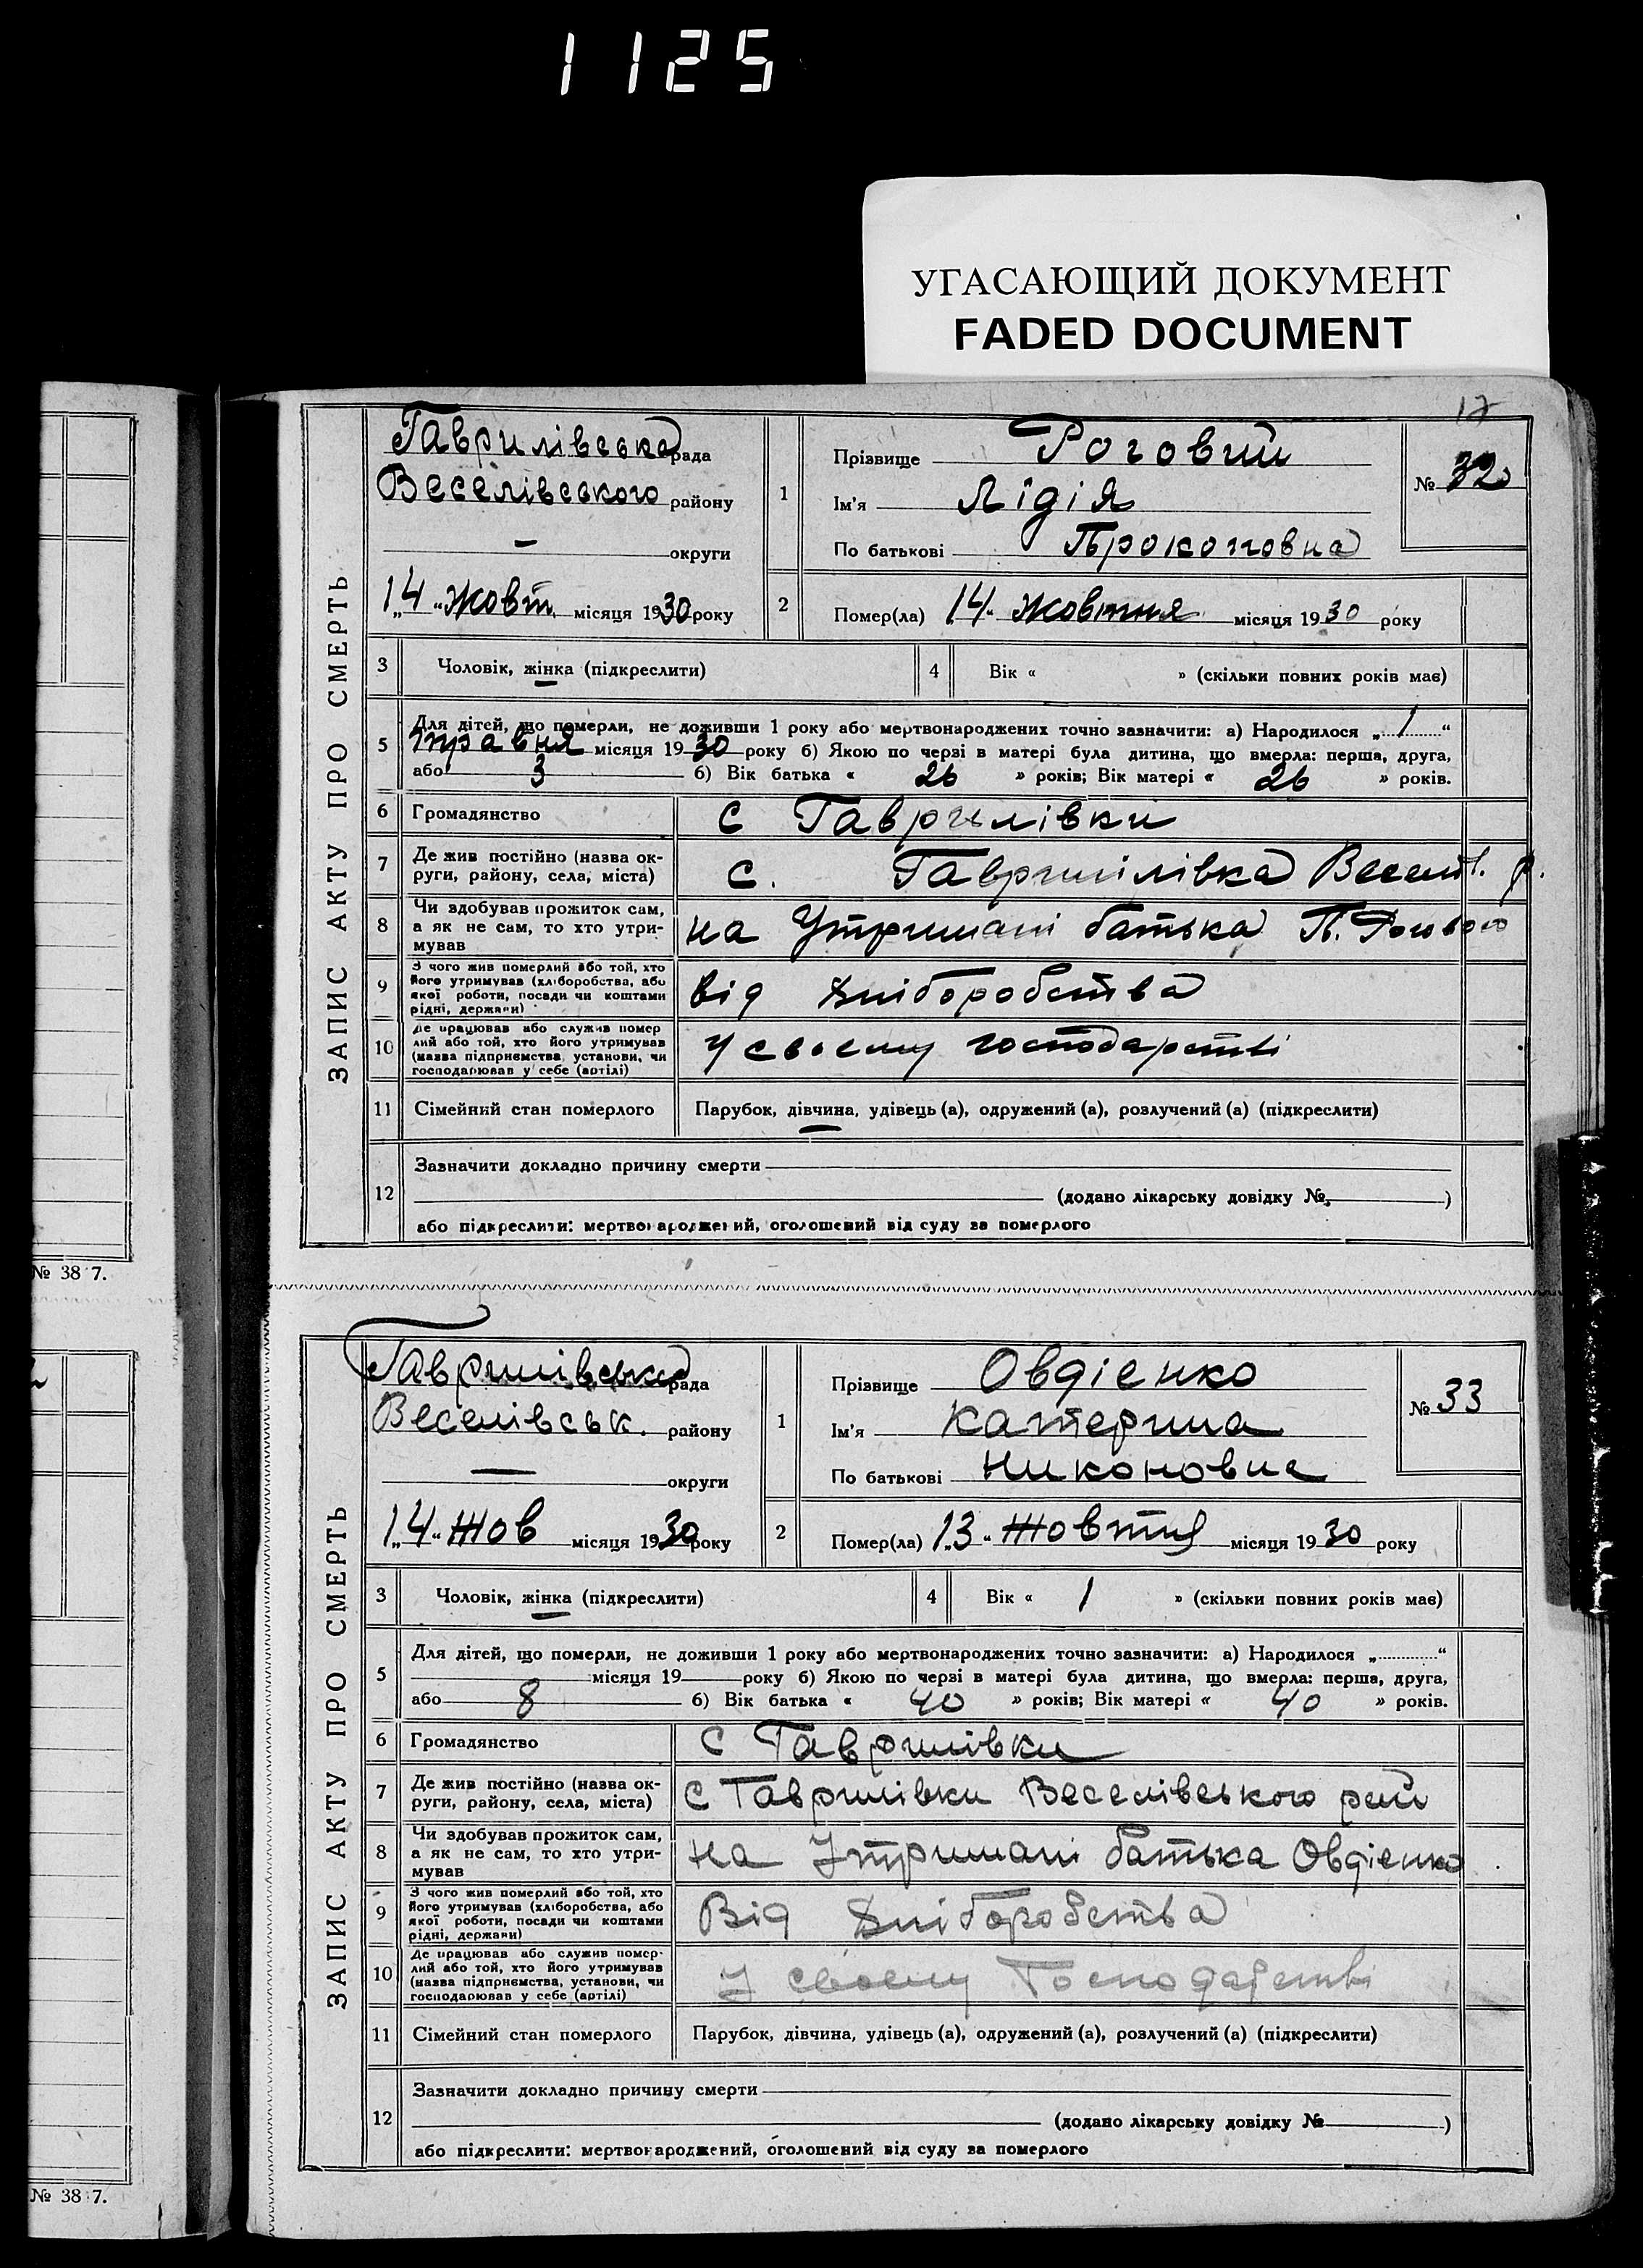 1125
УГАСАЮЩИЙ ДОКУМЕНТ
FADED DOCUMENT
17
ЗАПИС АКТУ ПРО СМЕРТЬ
Гаврилівська рада
Веселівського району
— округи
„14“ Жовт. місяця 1930 року
1
Прізвище Роговий
Ім'я Лідія
По батькові Прокоповна
№ 32
2
Помер(ла) „14“ Жовтня місяця 1930 року
3 Чоловік, жінка (підкреслити)
4 Вік « » (скільки повних років має)
5 Для дітей, що померли, не доживши 1 року або мертвонароджених точно зазначити: а) Народилося „1“
травня місяця 1930 року б) Якою по черзі в матері була дитина, що вмерла: перша, друга,
або 3 б) Вік батька « 26 » років; Вік матері « 26 » років.
6 Громадянство с Гаврилівки
7 Де жив постійно (назва ок-
руги, району, села, міста)
с. Гаврилівка Весел. р.
8 Чи здобував прожиток сам,
а як не сам, то хто утри-
мував
на Утримані батька П. Рогового
9 З чого жив померлий або той, хто
його утримував (хліборобства, або
якої роботи, посади чи коштами
рідні, держави)
від Хліборобства
10 Де працював або служив помер
лий або той, хто його утримував
(назва підприємства, установи, чи
господарював у себе (артілі)
У своему господарстві
11 Сімейний стан померлого Парубок, дівчина, удівець (а), одружений (а), розлучений (а) (підкреслити)
12 Зазначити докладно причину смерти
(додано лікарську довідку № )
або підкреслити: мертвонароджений, оголошений від суду за померлого
№ 38 7.
ЗАПИС АКТУ ПРО СМЕРТЬ
Гаврилівська рада
Веселівськ. району
— округи
„14“ Жов місяця 1930 року
1
Прізвище Овдіенко
Ім'я Катерина
По батькові Никоновна
№ 33
2
Помер(ла) „13“ Жовтня місяця 1930 року
3 Чоловік, жінка (підкреслити)
4 Вік « 1 » (скільки повних років має)
5 Для дітей, що померли, не доживши 1 року або мертвонароджених точно зазначити: а) Народилося „ “
місяця 19 року б) Якою по черзі в матері була дитина, що вмерла: перша, друга,
або 8 б) Вік батька « 40 » років; Вік матері « 40 » років.
6 Громадянство С Гаврилівки
7 Де жив постійно (назва ок-
руги, району, села, міста)
С Гаврилівки Веселівського рай
8 Чи здобував прожиток сам,
а як не сам, то хто утри-
мував
на Утримані батька Овдіенко
9 З чого жив померлий або той, хто
його утримував (хліборобства, або
якої роботи, посади чи коштами
рідні, держави)
Від Хліборобства
10 Де працював або служив помер-
лий або той, хто його утримував
(назва підприємства, установи, чи
господарював у себе (артілі)
У своему Господарстві
11 Сімейний стан померлого Парубок, дівчина, удівець (а), одружений (а), розлучений (а) (підкреслити)
12 Зазначити докладно причину смерти
(додано лікарську довідку № )
або підкреслити: мертвонароджений, оголошений від суду за померлого
№ 38 7.